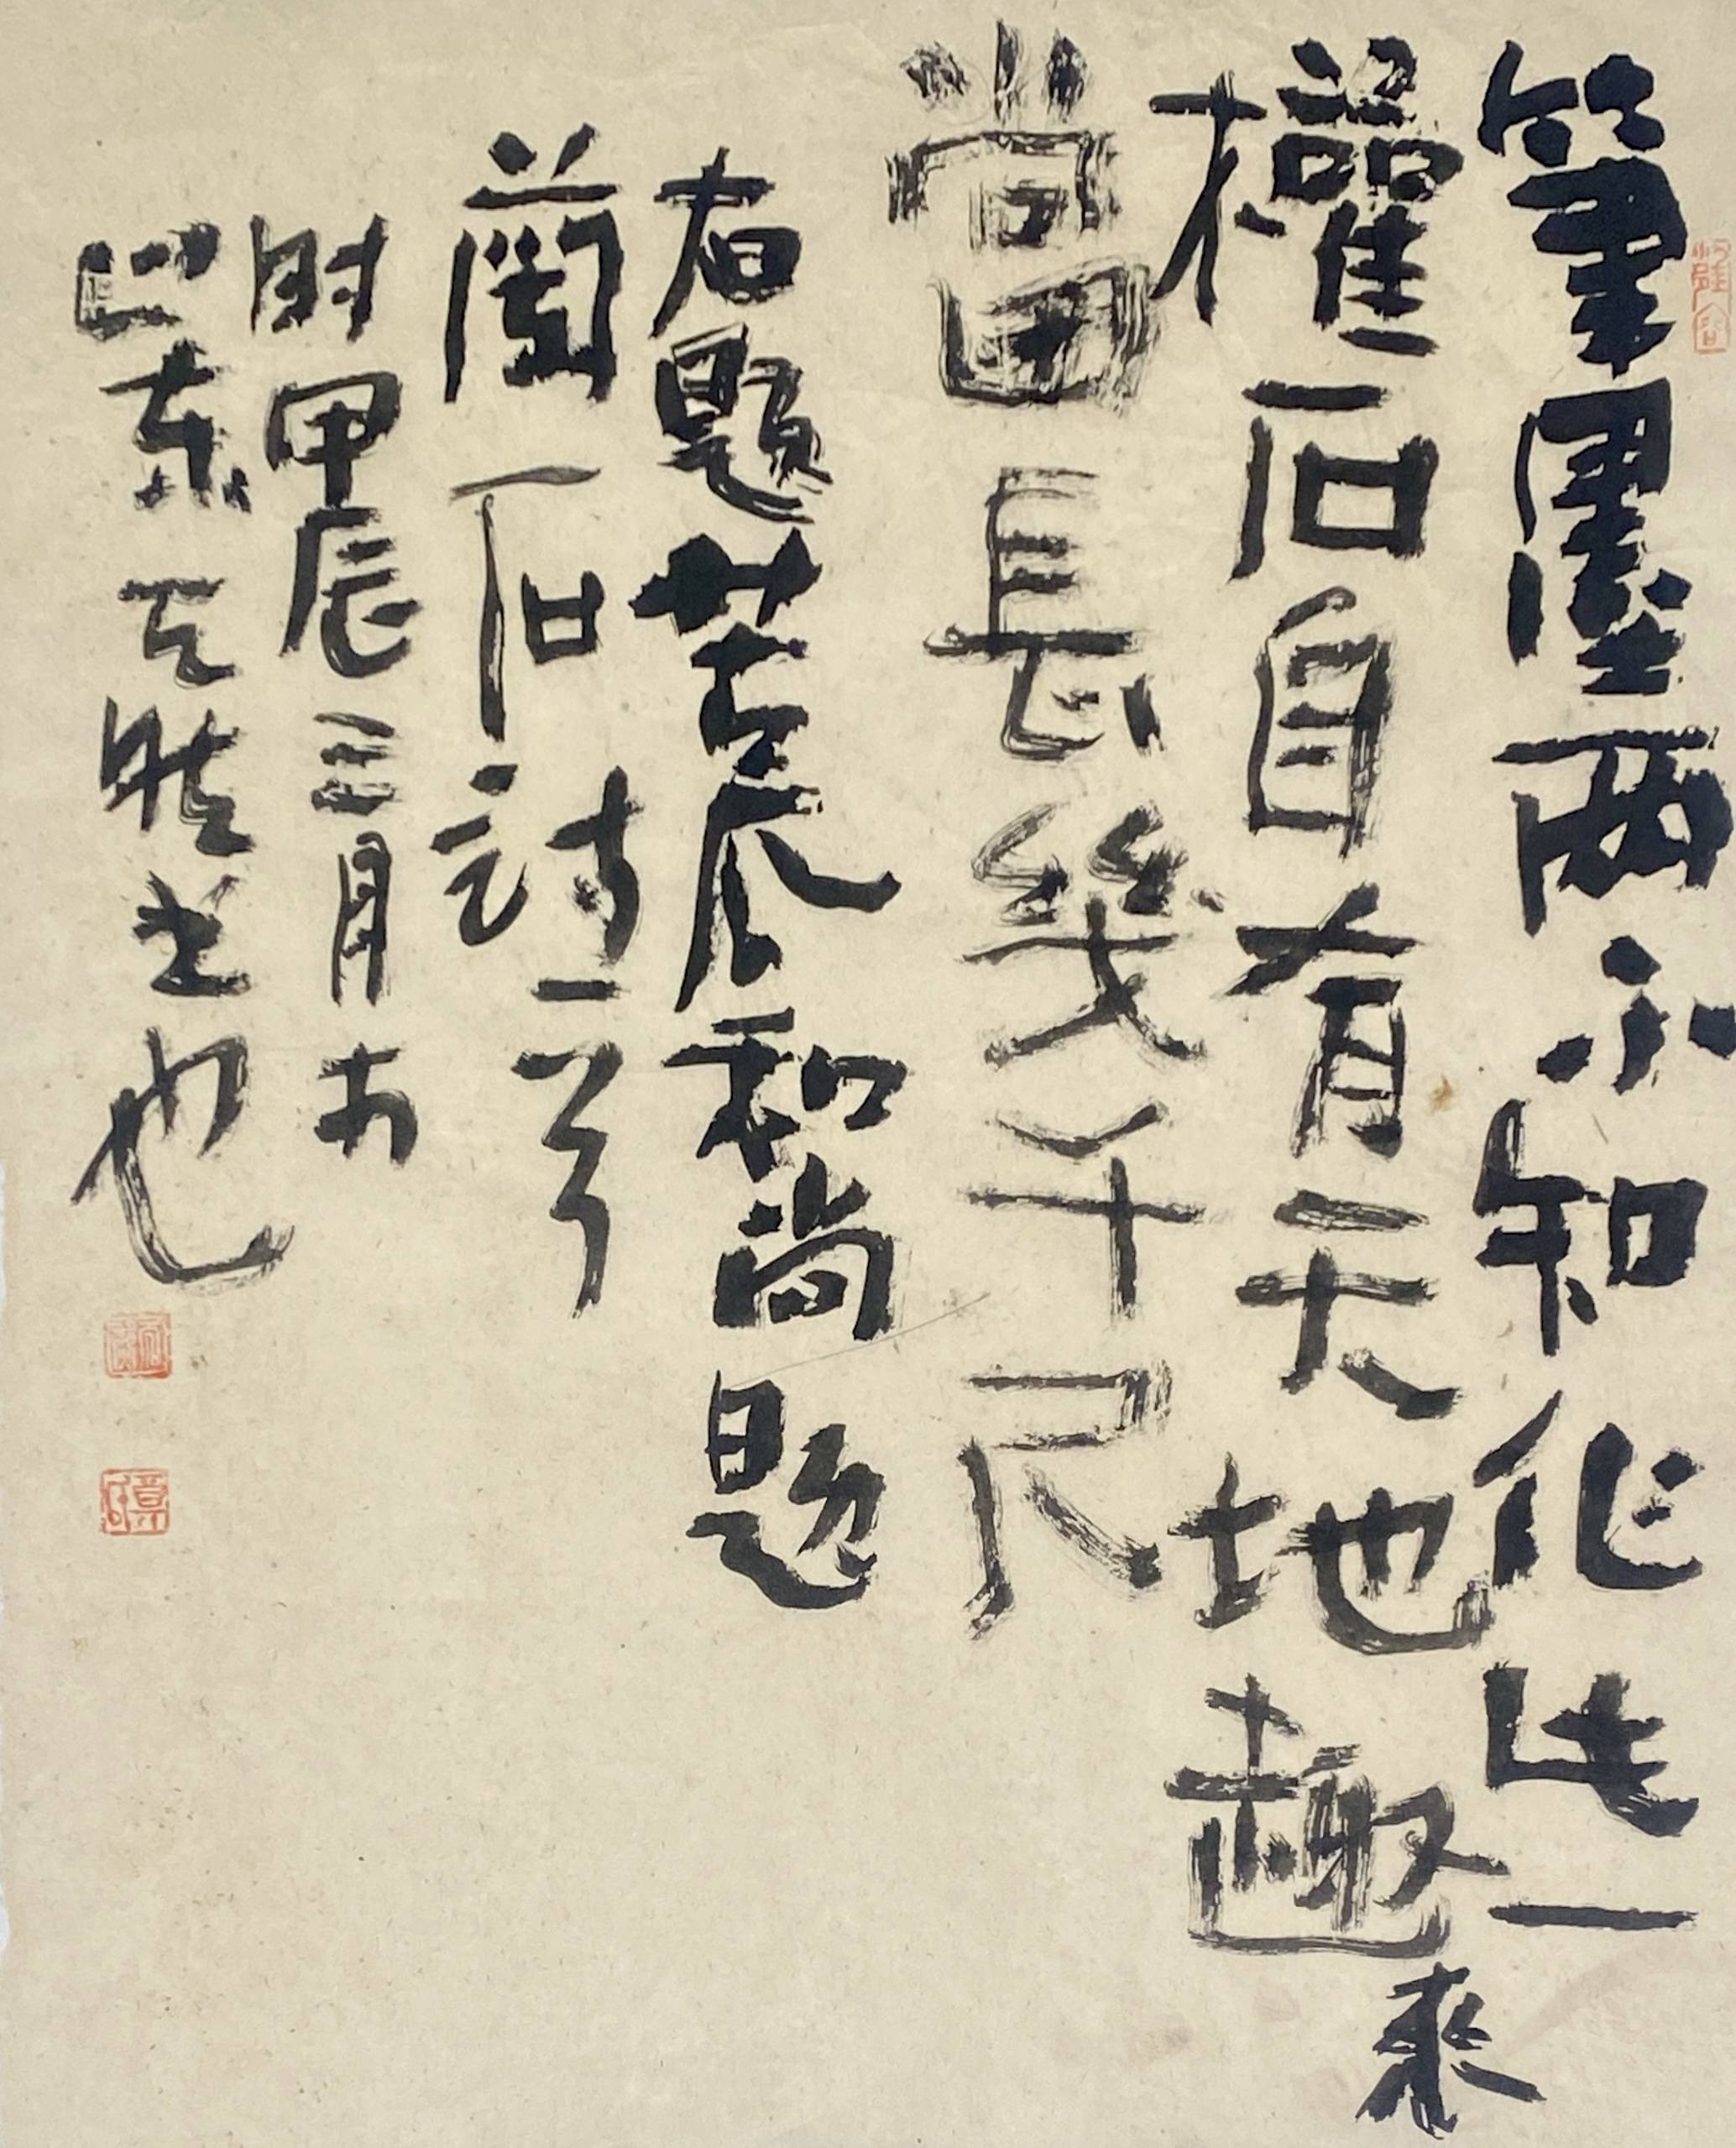 筆墨兩不知化此一
權石自有天地趣來
當長幾千尺
右題苦瓜和尚題
蘭石詩一首
時甲辰三月於
東 也